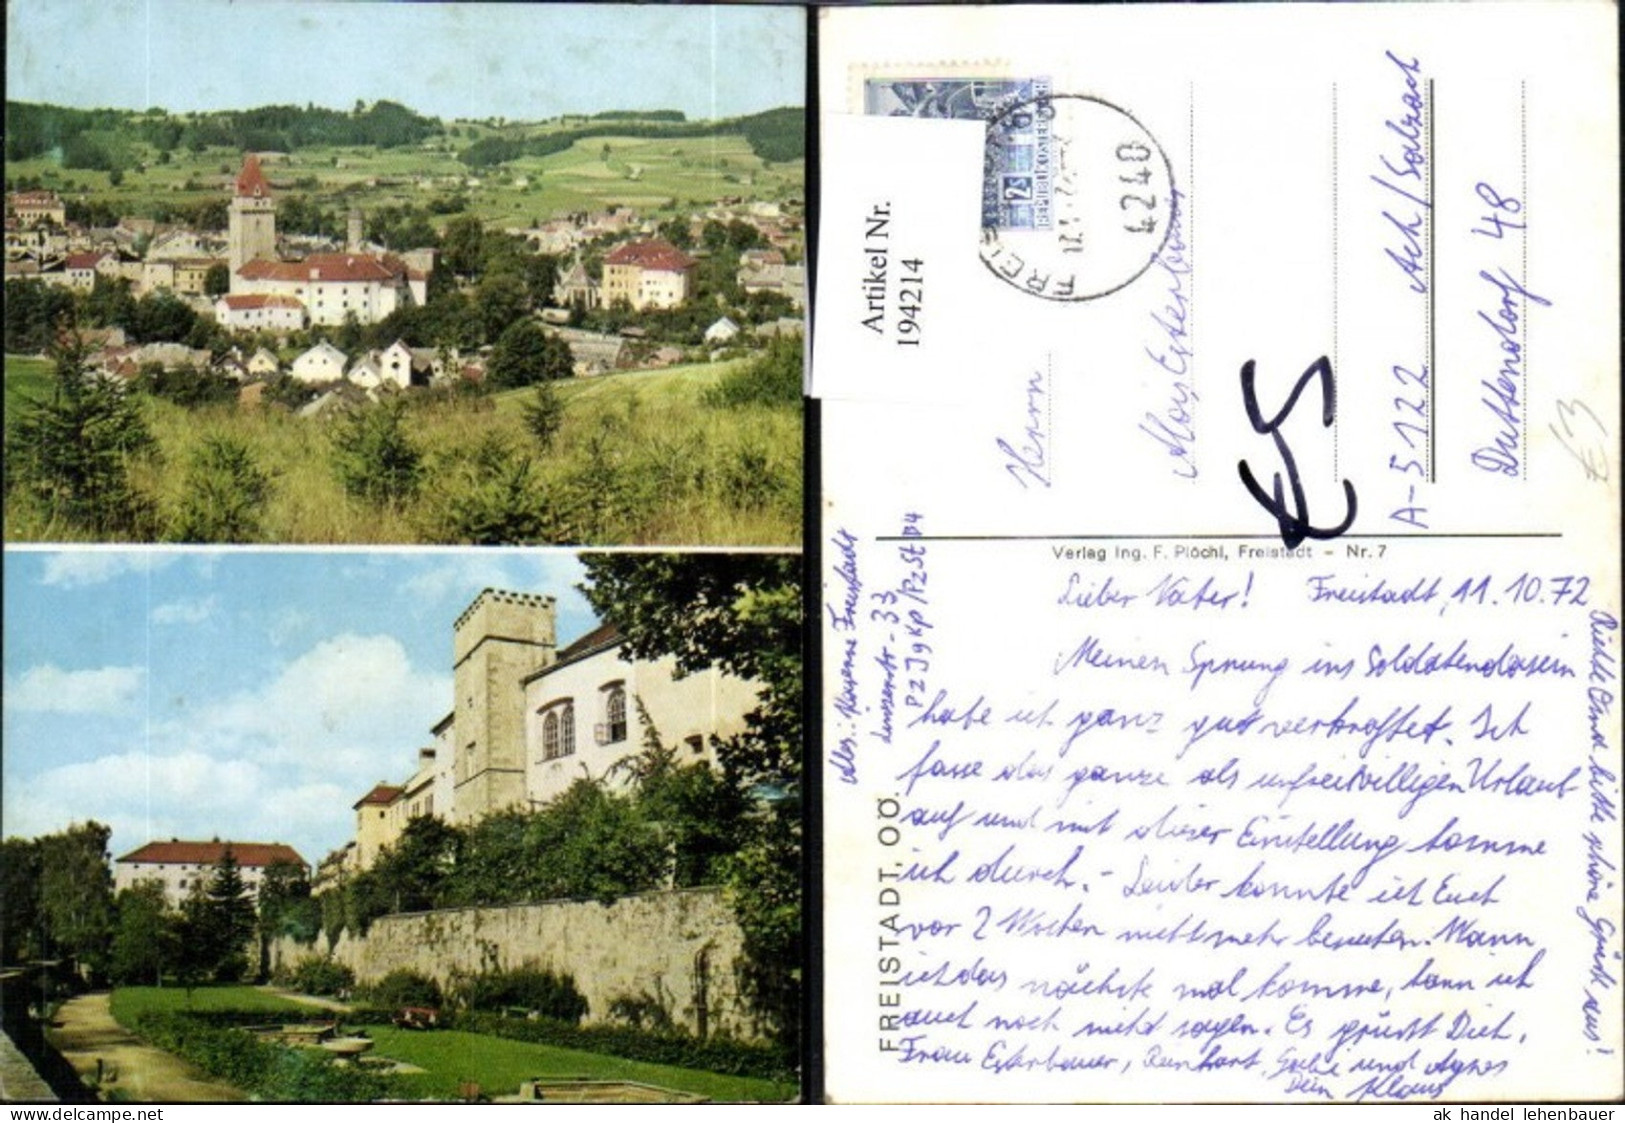 Artikel Nr.
194214
2s
REPUBLIK ÖSTERREICH
4240
Herrn
Alois Esterbauer
A-5122 Ach/Salzach
Duttendorf 48
€5
€3
Verlag Ing. F. Plöchl, Freistadt - Nr. 7
FREISTADT, OÖ.
Abs.: Kaserne Freistadt
Linzerstr. 33
Lieber Vater! Freistadt, 11.10.72
Meinen Sprung ins Soldatendasein
habe ich ganz gut verkraftet. Ich
fasse das ganze als unfreiwilligen Urlaub
auf und mit dieser Einstellung komme
ich durch. - Leider konnte ich Euch
vor 2 Wochen nicht mehr besuchen. Wann
ich das nächste mal komme, kann ich
auch noch nicht sagen. Es grüsst Dich,
Frau Esterbauer, Reinhart, Gabi und Agnes
Dein Klaus
Richte Oma bitte schöne Grüße aus!
ak handel lehenbauer